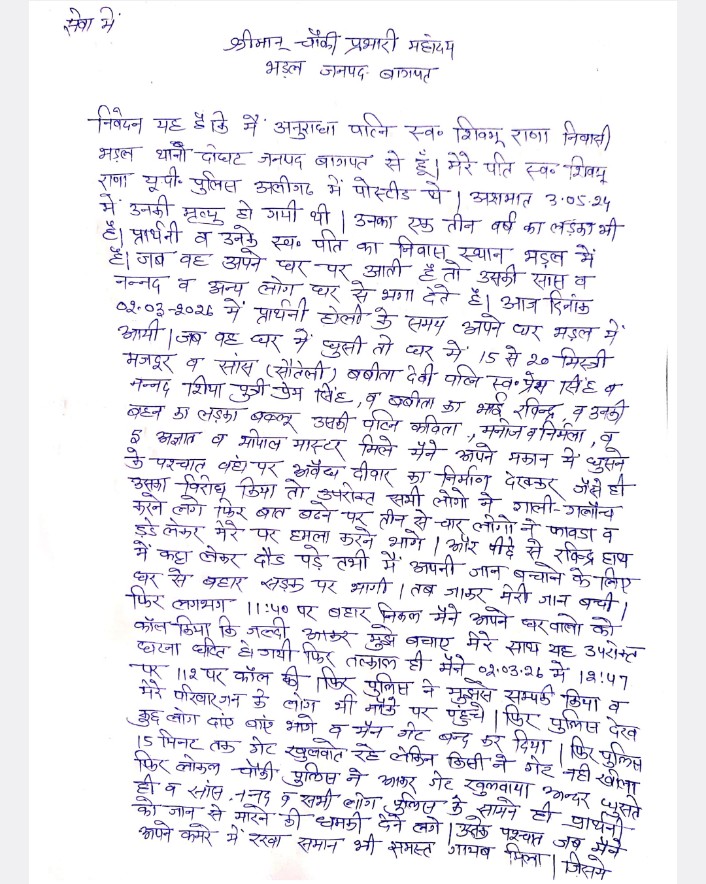 सेवा में
श्रीमान् चौकी प्रभारी महोदय
भड़ल जनपद बागपत
निवेदन यह है कि मैं अनुराधा पत्नि स्व० शिवम् राणा निवासी
भड़ल थाना दोघट जनपद बागपत से हूँ। मेरे पति स्व० शिवम्
राणा यू.पी. पुलिस अलीगढ में पोस्टीड थे। अशमात 3.05.24
में उनकी मृत्यु हो गयी थी। उनका एक तीन वर्ष का लड़का भी
है। प्रार्थनी व उनके स्व० पति का निवास स्थान भड़ल में
है। जब वह अपने घर पर आती है तो उसकी सास व
नन्नद व अन्य लोग घर से भगा देते है। आज दिनांक
02.03-2026 में प्रार्थनी होली के समय अपने घर भड़ल में
आयी। जब वह घर में घुसी तो घर में 15 से 20 मिस्त्री
मजदूर व सांस (सौतेली) बबीता देवी पत्नि स्व० प्रेम सिंह व
नन्नद शिपा पुत्री प्रेम सिंह, व बबीता का भाई रविन्द्र, व उनकी
बहन का लड़का बबलू उसकी पत्नि कविता, मनोज व निर्मला, व
5 अज्ञात व भोपाल मास्टर मिले मैंने अपने मकान में घुसने
के पश्चात वहां पर अवैध दीवार का निर्माण देखकर जैसे ही
उसका विरोध किया तो उपरोक्त सभी लोगो ने गाली-गलौच
करने लगे फिर बात बढने पर तीन से चार लोगों ने फावडा व
डंडे लेकर मेरे पर हमला करने भागे। और पीछे से रविन्द्र हाथ
में कट्टा लेकर दौड पड़े तभी मैं अपनी जान बचाने के लिए
घर से बहार सड़क पर भागी। तब जाकर मेरी जान बची।
फिर लगभग 11:40 पर बहार निकल मैंने अपने घरवालो को
कॉल किया कि जल्दी आकर मुझे बचाए मेरे साथ यह उपरोक्त
घटना घटित हो गयी फिर तत्काल ही मैंने 02.03.26 में 12:47
पर 112 पर कॉल की। फिर पुलिस ने मुझसे सम्पर्क किया व
मेरे परिवारगन के लोग भी मौके पर पहुंचे। फिर पुलिस देख
कुछ लोग दांए बांए भागे व मैन गेट बन्द कर दिया। फिर पुलिस
15 मिनट तक गेट खुलवाते रहे लेकिन किसी ने गेट नही खोला
फिर लोकल चौकी पुलिस ने आकर गेट खुलवाया अन्दर घुसते
ही व सांस, ननद व सभी लोग पुलिस के सामने ही प्रार्थनी
को जान से मारने की धमकी देने लगे। उसके पश्चात जब मैंने
अपने कमरे में रखा समान भी समस्त गायब मिला। जिसमे